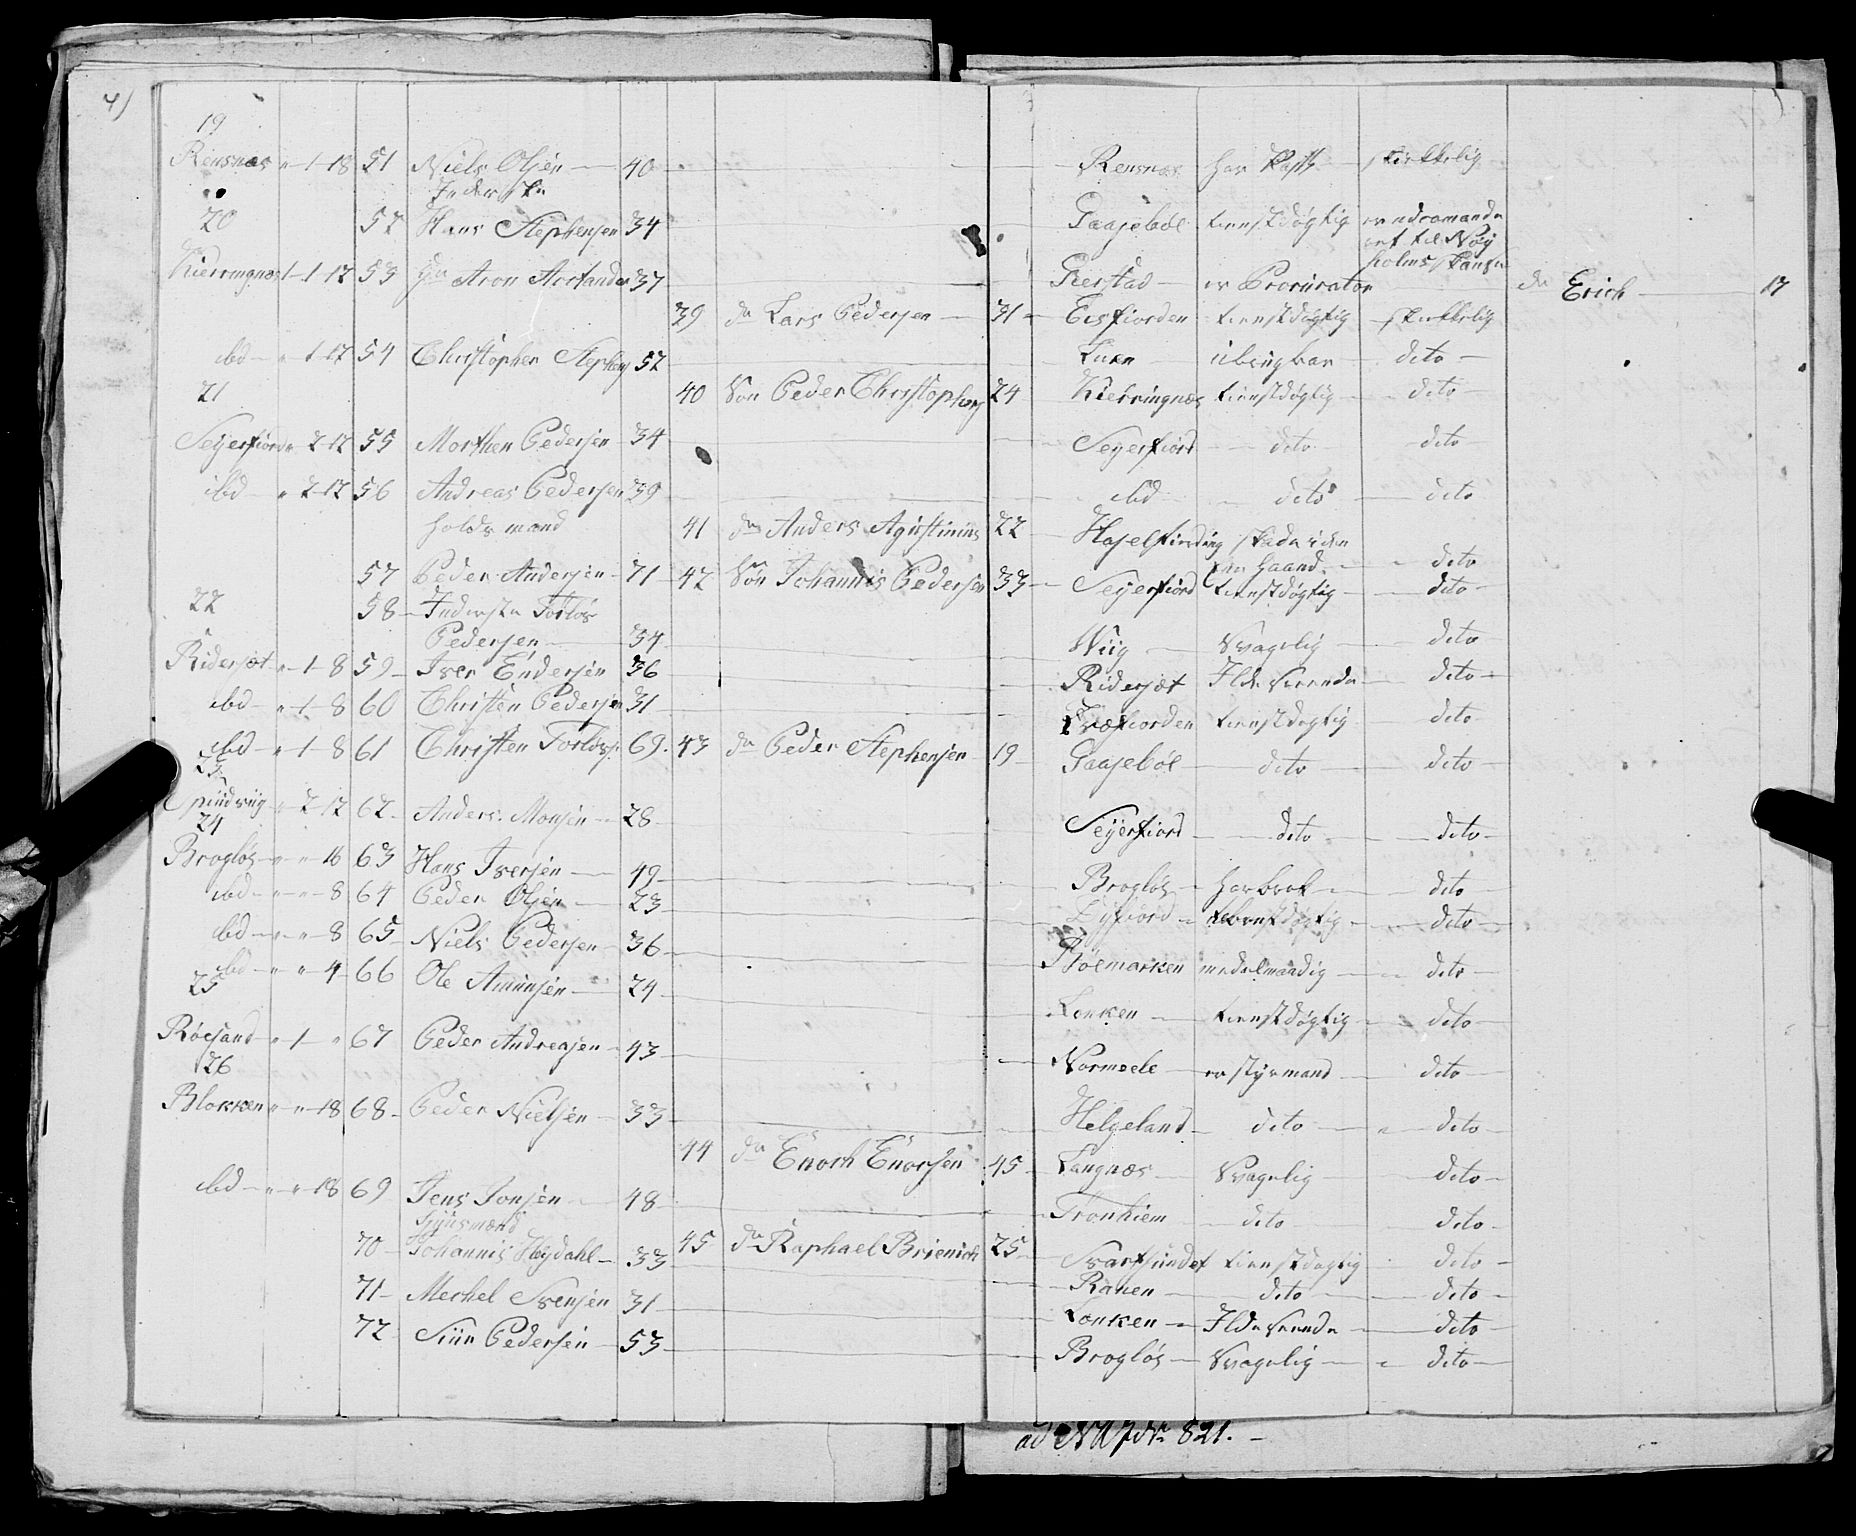 4)
19
Rensnas " 1 18 51 Niels Olsen 40 Rensnas har skaft skikkelig
Inderste
20 52 Hans Stephensen 34 Gaasebøl tienstdøgtig er udcomande
ret til Nøy
holms skantze
Kierringnæs 1 1 12 53 Hr Aron Arctander 37 Gierstad er Procurator dn Erich 17
39 dn Lars Pedersen 31 Eisfiorden tienstdøgtig skikkelig
ibd " 1 12 54 Christopher Stephens 52 ubrugbar dito
21 40 Søn Peder Christophers 24 Kierringnæs tienstdøgtig dito
Seyerfiord " 2 12 55 Morthen Pedersen 34 Seyerfiord dito dito
ibd " 2 12 56 Andreas Pedersen 39 ibd dito dito
holdsmand 41 dn Anders Agustinius 22 Haselfiording skade i den
57 Peder Andersen 71 42 Søn Johannis Pedersen 33 Seyerfiord tienstdøgtig dito
een Haand dito
22 58 Inderste Torløs
Pedersen 34 Wiig Svagelig dito
Ridersæt " 1 8 59 Iver Endersen 36 Ridersæt Ilde seende dito
ibd " 1 8 60 Christen Pedersen 31 Qvæfiorden tienstdøgtig dito
ibd " 1 8 61 Christen Torløss. 69 43 dn Peder Stephensen 19 Gaasebøl dito dito
23
Spindviig " 2 12 62 Anders Monsen 28 Seyerfiord dito dito
24
Brogløs " " 16 63 Hans Iversen 49 Brogløs har brok dito
ibd " " 8 64 Peder Olsen 23 tienstdøgtig dito
ibd " " 8 65 Niels Pedersen 36 Bøemarken medelmaadig dito
ibd " " 4 66 Ole Amunsen 24 Lonken tienstdøgtig dito
25
Røesand " 1 " 67 Peder Andreasen 43 Normoele er styrmand dito
26
Blokken " " 18 68 Peder Nielsen 33 Helgeland dito dito
44 dn Enoch Enocsen 45 Langnæs Svagelig dito
ibd " " 18 69 Jens Jonsen 48 Tronhiem dito dito
70 Johannis Høydahl 33 45 dn Raphael Brienich 25 Svartsundet tienstdøgtig dito
71 Merhel Svensen 31 Ranen dito dito
72 Siur Pedersen 53 Lonken Ilde seende dito
Brogløs Svagelig dito
821.